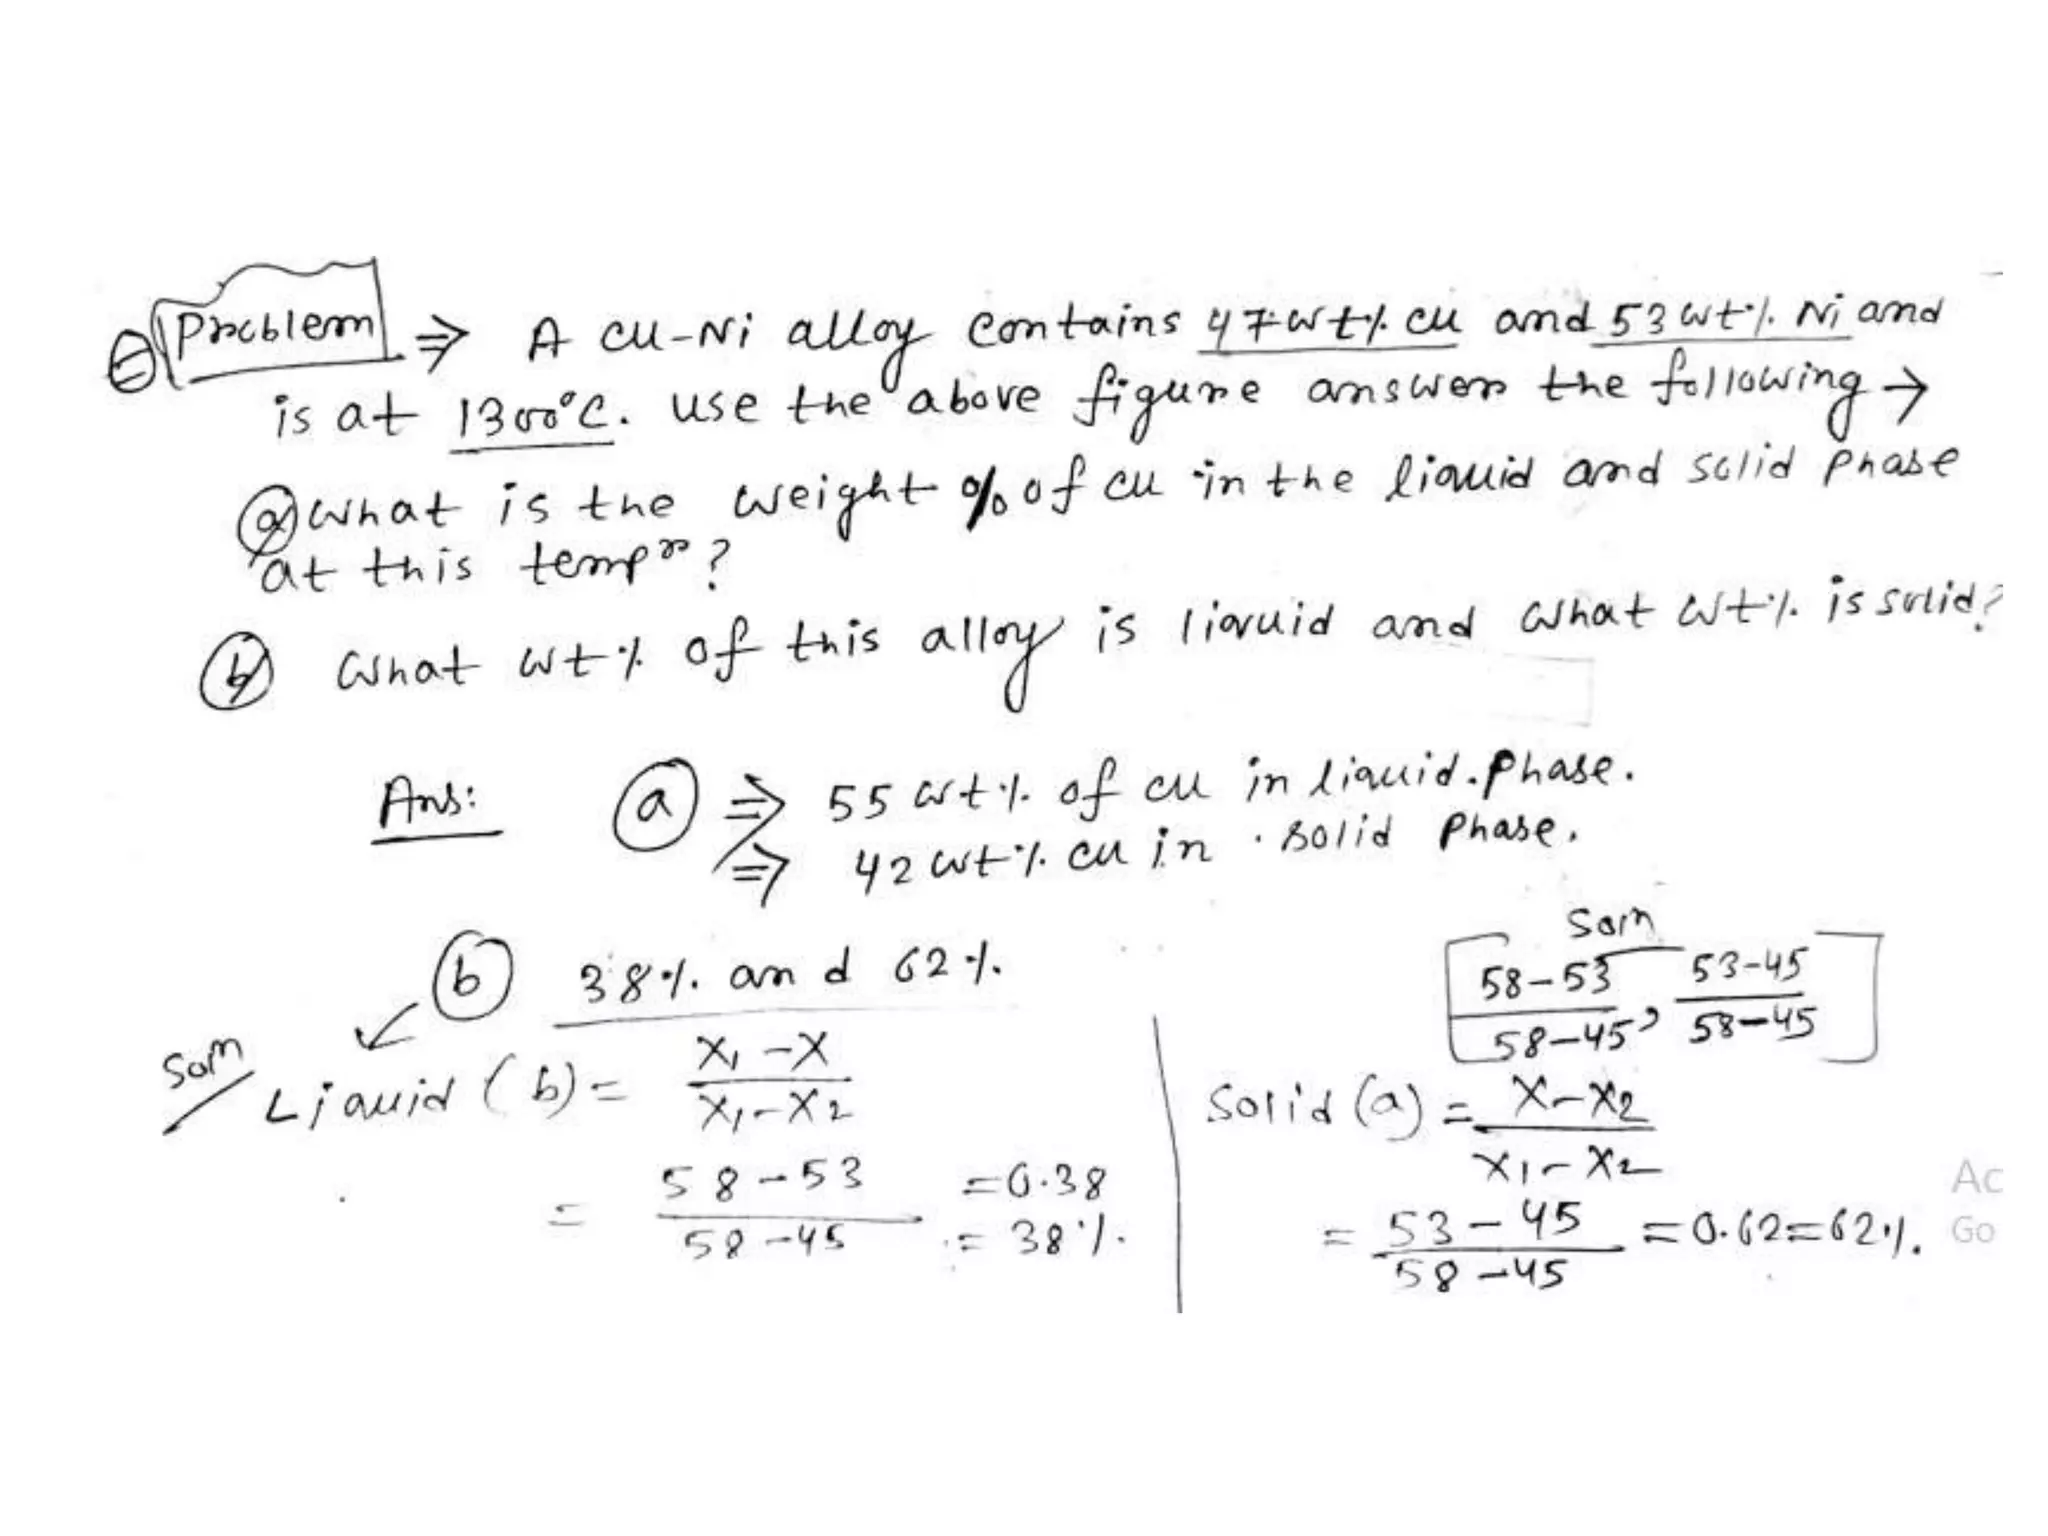 Problem ⇒ A Cu-Ni alloy contains 47 wt% Cu and 53 wt% Ni and
is at 1300°C. Use the above figure answer the following →
(a) What is the weight % of Cu in the liquid and solid phase
at this tempr?
(b) What wt% of this alloy is liquid and what wt% is solid?
Ans: (a) ⇒ 55 wt% of Cu in liquid.phase.
⇒ 42 wt% Cu in solid phase.
(b) 38% and 62%.
Soln
[58-53/58-45, 53-45/58-45]
Soln Liquid (b) = X1-X/X1-X2
= 58-53/58-45 =0.38
= 38%.
Solid (a) = X-X2/X1-X2
= 53-45/58-45 =0.62=62%.
Ac
Go